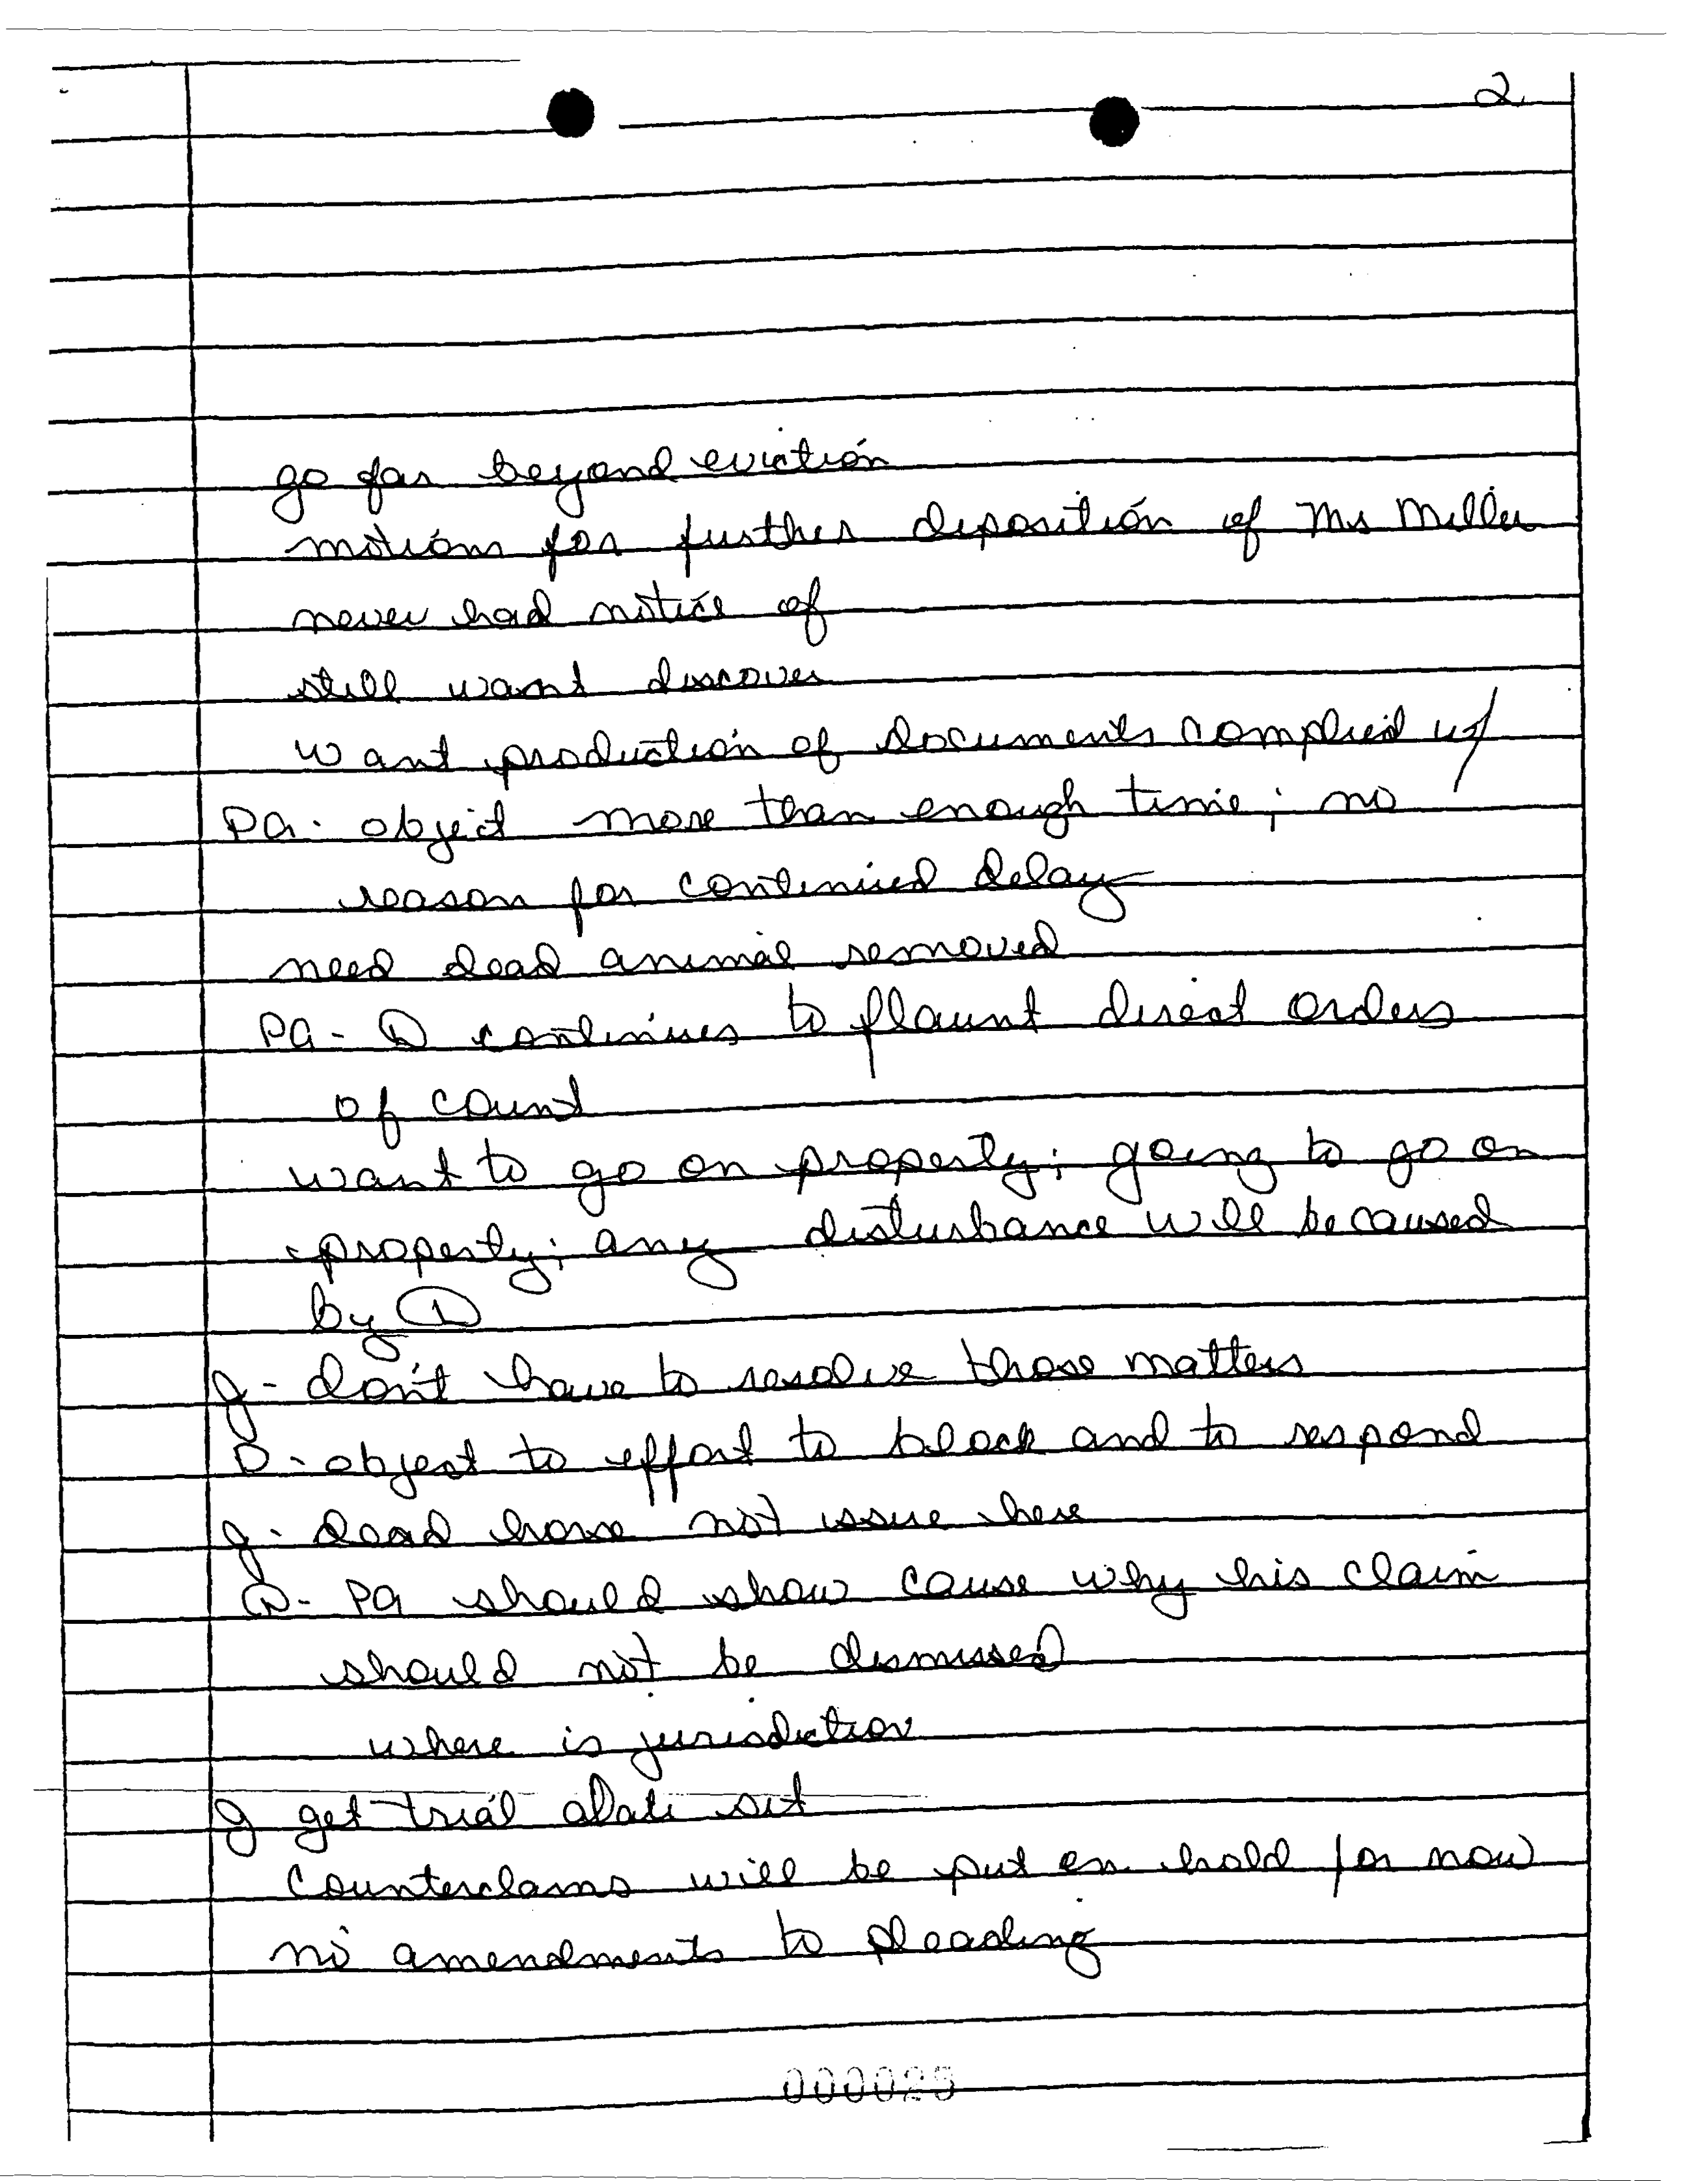 2.
go far beyond eviction
motions for further deposition of Ms Miller
never had notice of
still want discover
want production of documents complied w/
PA- object more than enough time; no
reason for continued delay
need dead animal removed
PA- D continues to flaunt direct orders
of court
want to go on property; going to go on
property; any disturbance will be caused
by D
J- don't have to resolve those matters
D- object to effort to block and to respond
J- dead horse not issue here
D- PA should show cause why his claim
should not be dismissed
where is jurisdiction
J get trial date set
Counterclams will be put on hold for now
no amendments to pleading
000025